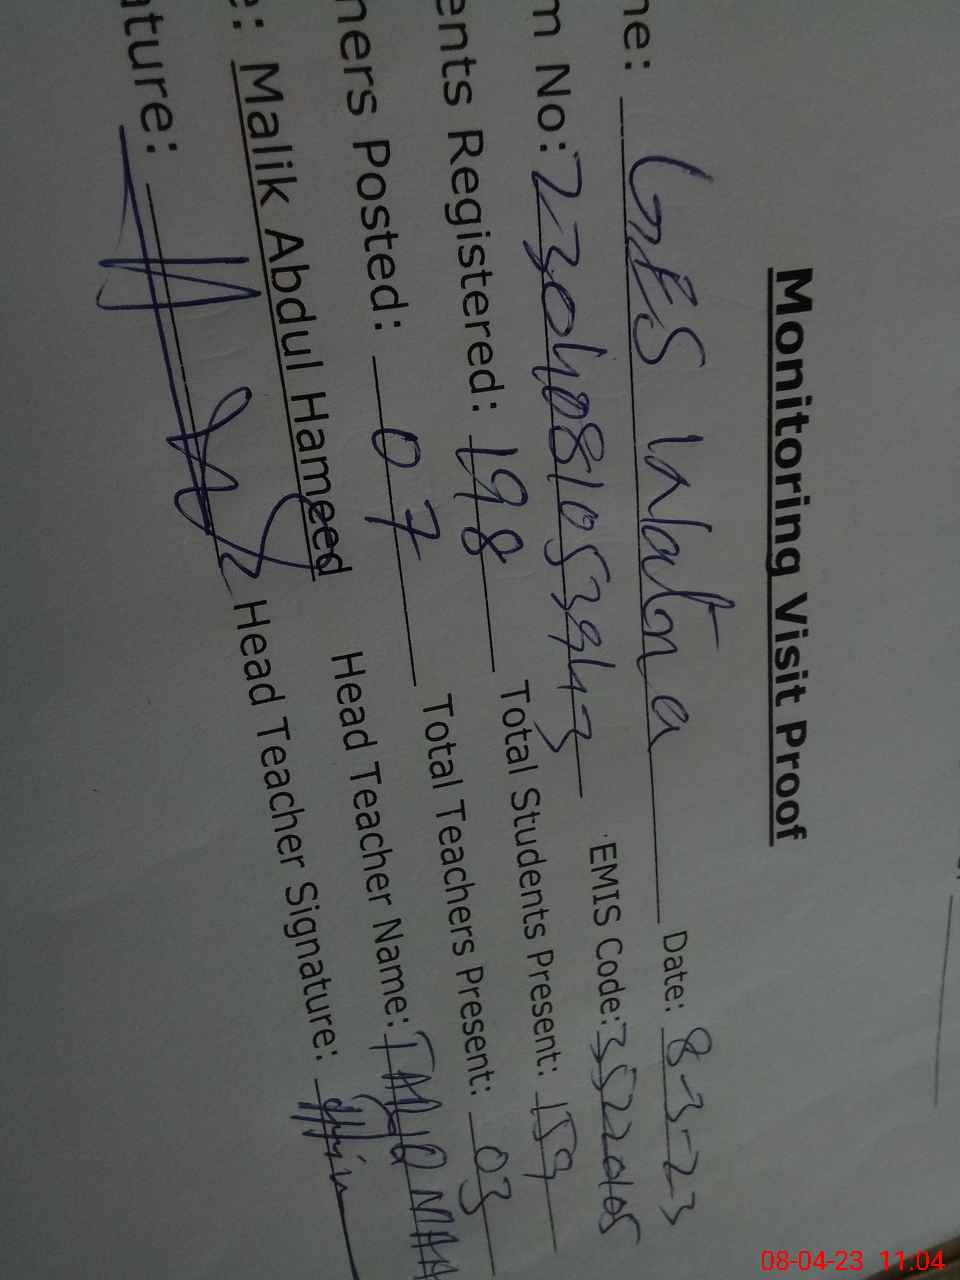 Monitoring Visit Proof
me: GES Waltna Date: 8-3-23
m No: 2304081053943 EMIS Code: 35220105
ents Registered: 198 Total Students Present: 159
hers Posted: 07 Total Teachers Present: 03
e: Malik Abdul Hameed Head Teacher Name:
ature: Head Teacher Signature:
08-04-23 11.04